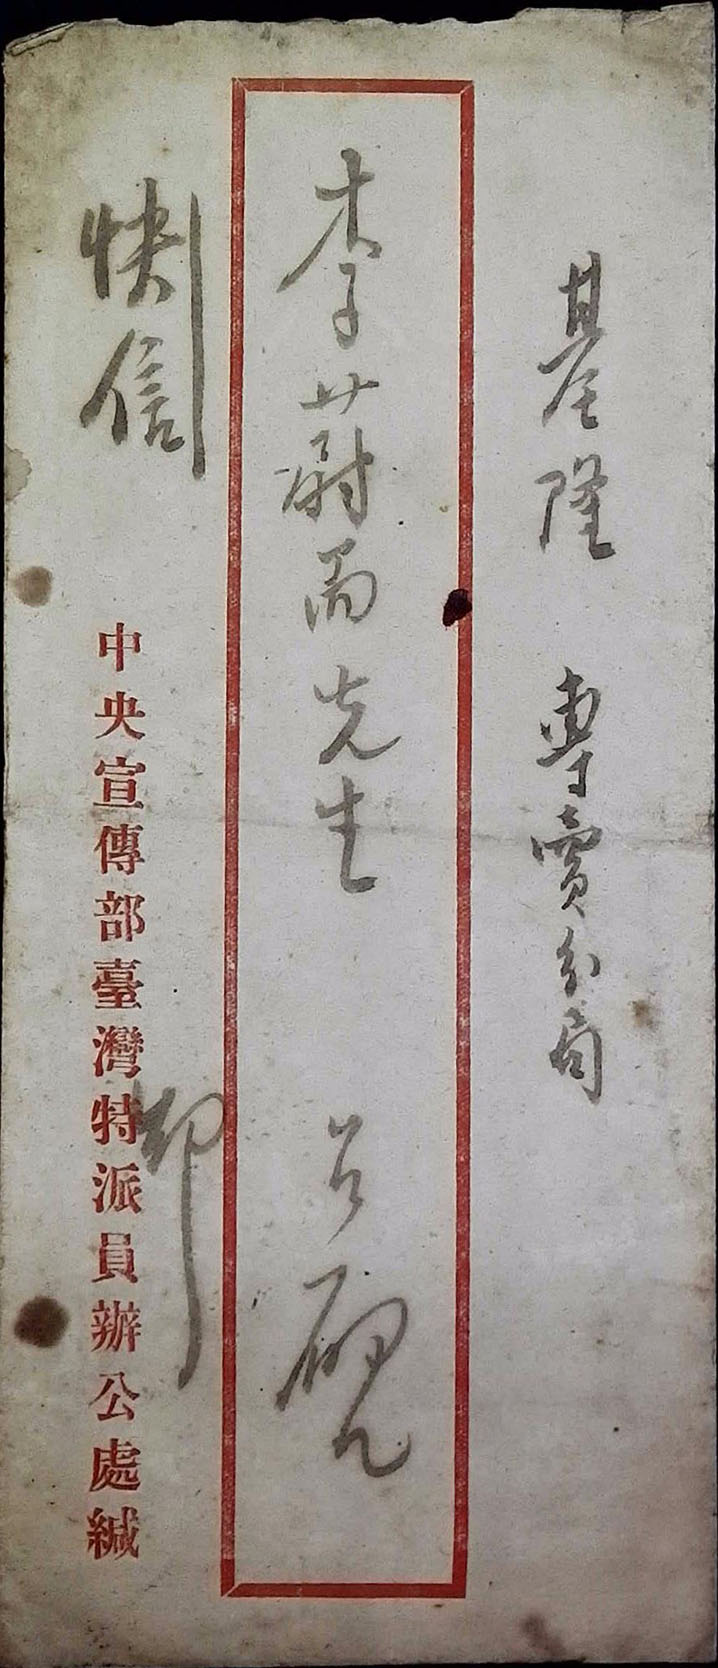 基隆 專賣分局
李蔚而先生 台硯
快信
中央宣傳部臺灣特派員辦公處緘